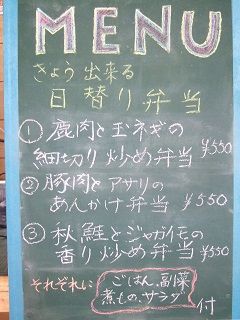 MENU
きょう出来る
日替り弁当
① 鹿肉と玉ネギの
細切り炒め弁当 ¥550
② 豚肉とアサリの
あんかけ弁当 ¥550
③ 秋鮭とジャガイモの
香り炒め弁当 ¥550
それぞれに ごはん、副菜
煮もの、サラダ 付